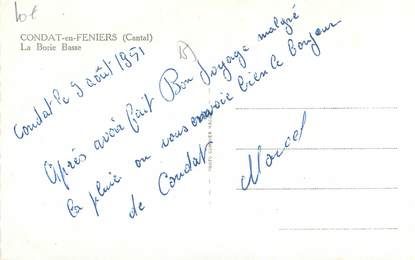 lot
CONDAT-en-FENIERS (Cantal)
La Borie Basse
15
Condat le 9 août 1951
Après avoir fait Bon Voyage malgré
la pluie on vous envoie bien le bonjour
de Condat
Marcel